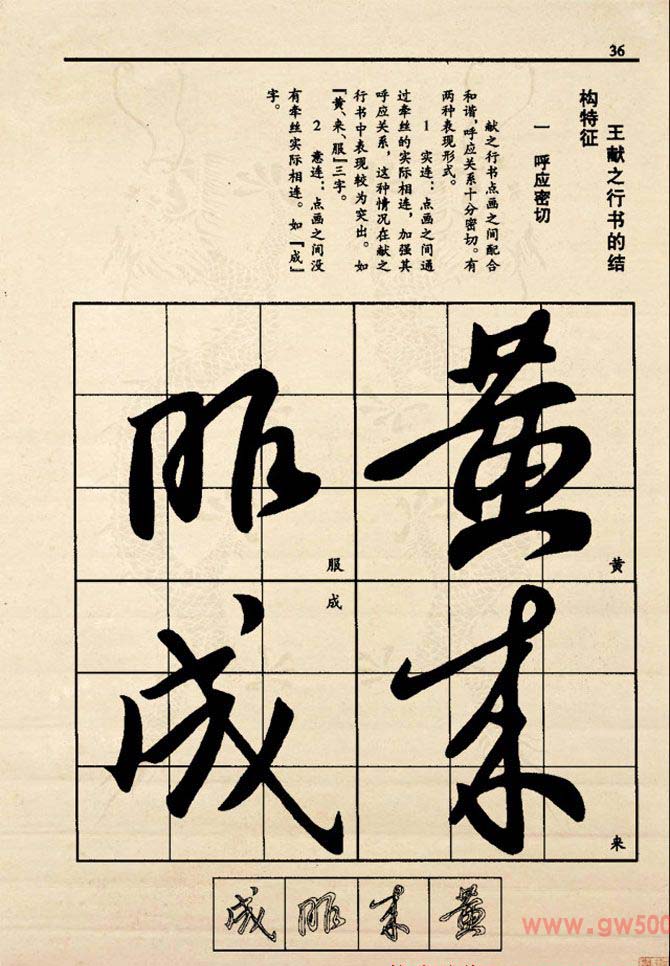 36
王献之行书的结
构特征
一 呼应密切
献之行书点画之间配合
和谐,呼应关系十分密切。有
两种表现形式。
1 实连:点画之间通
过牵丝的实际相连,加强其
呼应关系,这种情况在献之
行书中表现较为突出。如
『黄、来、服』三字。
2 意连:点画之间没
有牵丝实际相连。如『成』
字。
黄
黄
来
来
服
服
成
成
黄来服成
www.gw500